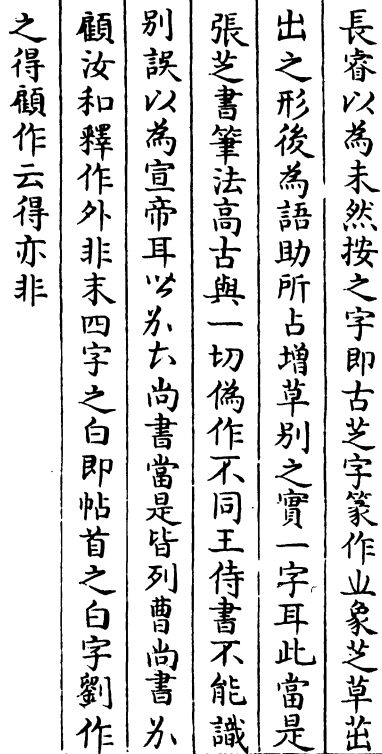 長睿以為未然按之字即古芝字篆作㞢象芝草茁
出之形後為語助所占增草别之實一字耳此當是
張芝書筆法髙古與一切偽作不同王侍書不能識
别誤以為宣帝耳尚書當是皆列曹尚書
顧汝和釋作外非末四字之白即帖首之白字劉作
之得顧作云得亦非